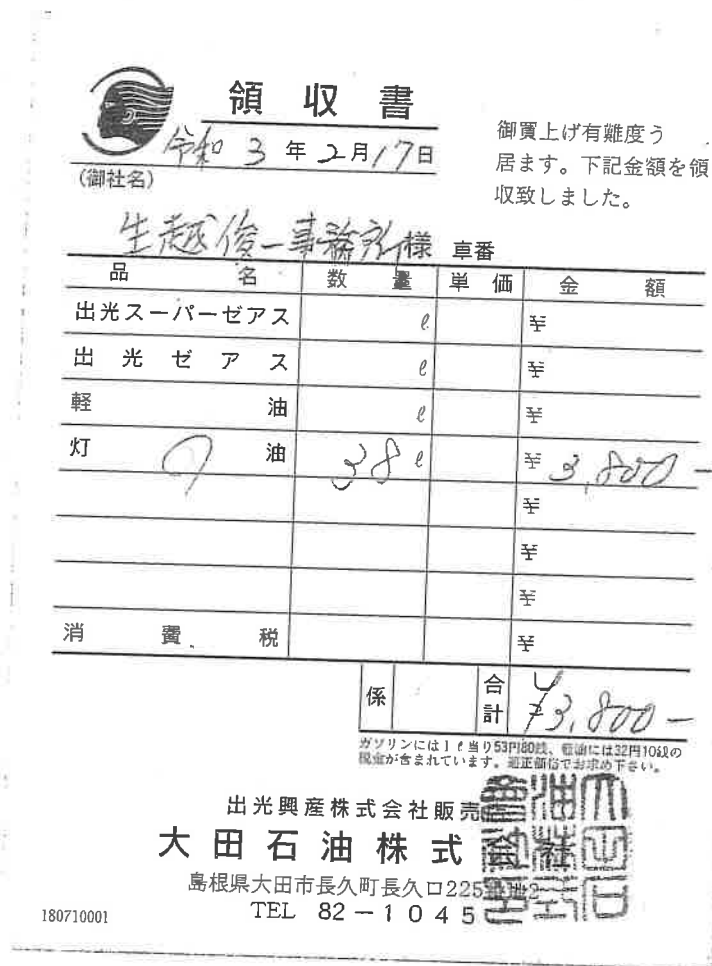 領収書
令和3年2月17日
(御社名)
御買上げ有難度う
居ます。下記金額を領
収致しました。
生越俊一事務所様 車番
品名 数量 単価 金額
出光スーパーゼアス ℓ ¥
出光ゼアス ℓ ¥
軽油 ℓ ¥
灯油 38 ℓ ¥3,800-
¥
¥
¥
消費税 ¥
係 合計 ¥3,800-
ガソリンには1ℓ当り53円80銭、軽油には32円10銭の
税金が含まれています。適正価格でお求め下さい。
出光興産株式会社販売
大田石油株式
島根県大田市長久町長久口225
TEL 82-1045
180710001